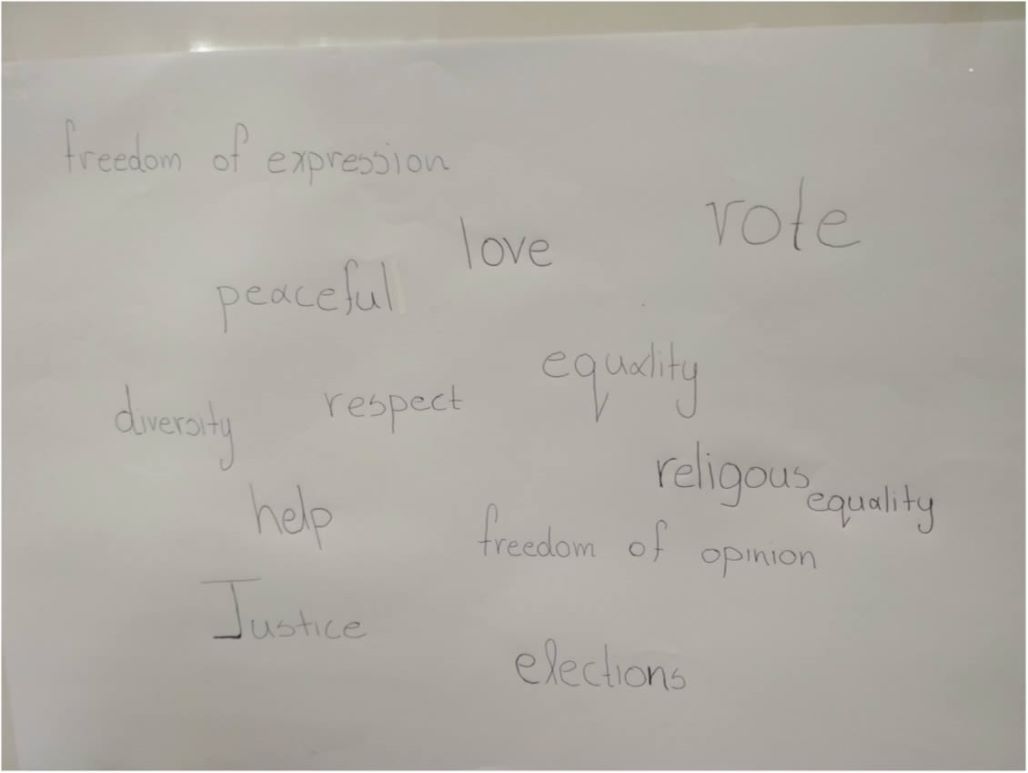 freedom of expression
vote
love
peaceful
equality
respect
diversity
religous equality
help
freedom of opinion
Justice
elections